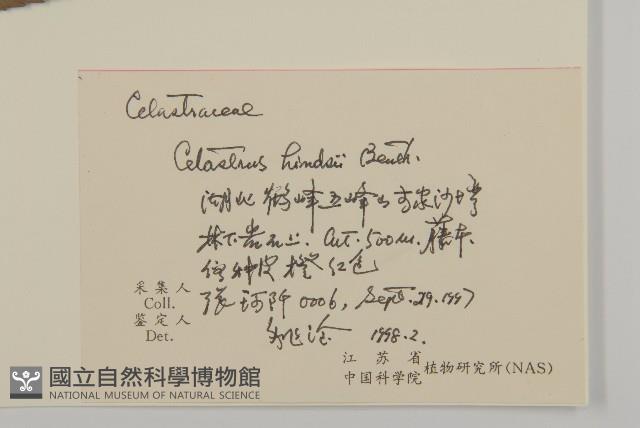 Celastraceae
Celastrus hindsii Benth.
湖北 鹤峰 五峰山 高家沙湾
林下岩石上. alt. 500m. 藤本.
假种皮橙红色
采集人
Coll. 张 0006, Sept. 29. 1997
鉴定人
Det. 1998.2.
江苏省
中国科学院 植物研究所(NAS)
國立自然科學博物館
NATIONAL MUSEUM OF NATURAL SCIENCE